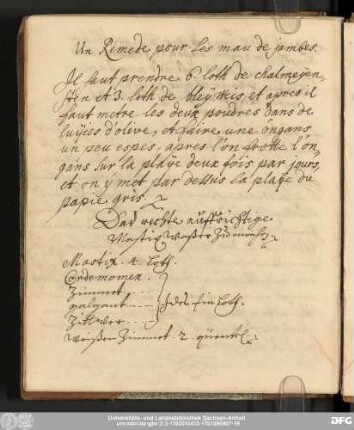 Un Remede pour les mau de jambes.
Il faut prendre 6 loth de chalmeyen-
sten et 3. loth de bleyweis, et apres il
faut metre les deux poudres dans de
luyies d'olive, et faire une ongans
un peu espes, apres l'on frotte l'on-
gans sur la playe deux fois par jours,
et on y met par dessus la playe du
papie gris.
Das rechte auffrichtige
Mastix Wasser zu
Mastix 4. Loth.
Cordemomen.
Zimmet
galgant jedes ein Loth.
Zittwer
weissen Zimmet 2. quentl.
Universitäts- und Landesbibliothek Sachsen-Anhalt
DFG